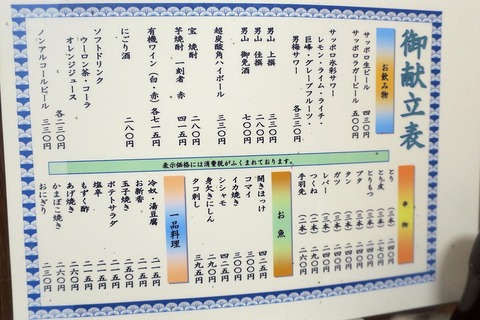 御献立表
お飲み物
サッポロ生ビール 四三〇円
サッポロラガービール 五〇〇円
サッポロ氷彩サワー
レモン・ライム・ライチ・
巨峰・グレープフルーツ・
男梅サワー 各三三〇円
男山 上撰 三三〇円
男山 佳撰 二八〇円
男山 御免酒 七〇〇円
超炭酸角ハイボール 三三〇円
宝 焼酎 二八〇円
芋焼酎 一刻者 赤 四一五円
有機ワイン(白・赤) 各七一五円
にごり酒 二八〇円
ソフトドリンク
ウーロン茶・コーラ
オレンジジュース 各二三〇円
ノンアルコールビール 三三〇円
表示価格には消費税がふくまれております。
串物
とり
とり皮
とりもつ
ブタ
タン
ガツ
レバー
つくね
手羽先
お魚
開きほっけ 四二五円
コマイ 三〇〇円
イカ焼き 三〇〇円
シシャモ 四二五円
身欠きにしん
タコ刺し 三九五円
一品料理
冷奴・湯豆腐 二一五円
お新香 二一五円
玉子焼き 二五〇円
ポテトサラダ
塩辛 二一五円
もずく酢 二一五円
あげ焼き 二六〇円
かまぼこ焼き 二六〇円
おにぎり 二三〇円